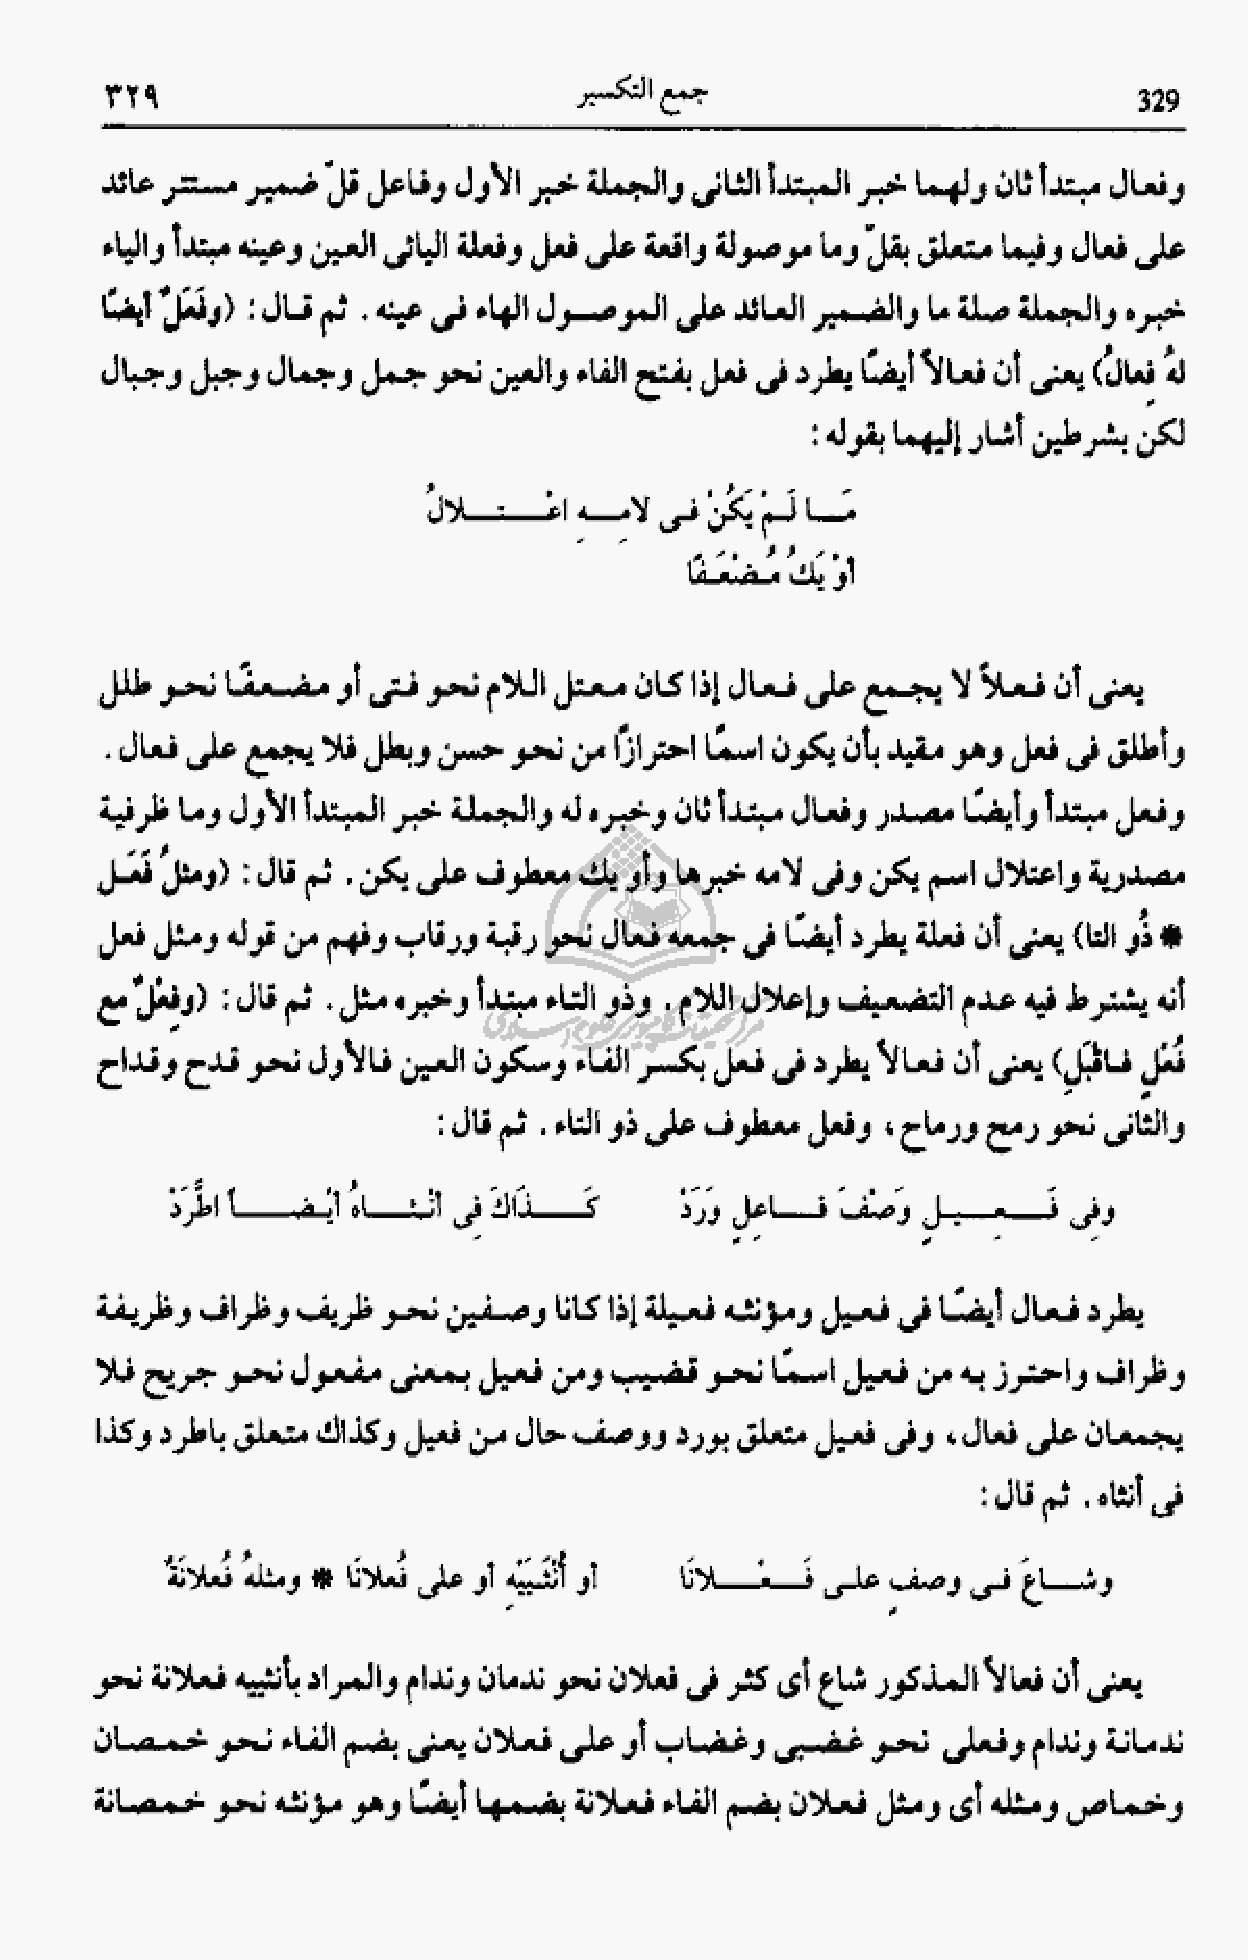 329 جمع التكسير ٣٢٩
وفعال مبتدأ ثان ولهما خبر المبتدأ الثانى والجملة خبر الأول وفاعل قلّ ضمير مستتر عائد
على فعال وفيما متعلق بقلّ وما موصولة واقعة على فعل وفعلة اليائى العين وعينه مبتدأ والياء
خبره والجملة صلة ما والضمير العائد على الموصول الهاء فى عينه . ثم قال : (وفَعَلٌ أيضًا
لهُ فِعالُ) يعنى أن فعالاً أيضًا يطرد فى فعل بفتح الفاء والعين نحو جمل وجمال وجبل وجبال
لكن بشرطين أشار إليهما بقوله :
مَا لَمْ يَكُنْ فى لامِهِ اعْتلالُ
أوْ يَكُ مُضْعَفًا
يعنى أن فعلاً لا يجمع على فعال إذا كان معتل اللام نحو فتى أو مضعفًا نحو طلل
وأطلق فى فعل وهو مقيد بأن يكون اسمًا احترازًا من نحو حسن وبطل فلا يجمع على فعال .
وفعل مبتدأ وأيضًا مصدر وفعال مبتدأ ثان وخبره له والجملة خبر المبتدأ الأول وما ظرفية
مصدرية واعتلال اسم يكن وفى لامه خبرها وأو يك معطوف على يكن . ثم قال : (ومثلُ فَعَلِ
* ذُو التا) يعنى أن فعلة يطرد أيضًا فى جمعه فعال نحو رقبة ورقاب وفهم من قوله ومثل فعل
أنه يشترط فيه عدم التضعيف وإعلال اللام . وذو التاء مبتدأ وخبره مثل . ثم قال : (وفِعْلٌ مع
فُعْلٍ فاقْبَلِ) يعنى أن فعالاً يطرد فى فعل بكسر الفاء وسكون العين فالأول نحو قدح وقداح
والثانى نحو رمح ورماح ، وفعل معطوف على ذو التاء . ثم قال :
وفِى فَعِيلٍ وَصْفَ فاعِلٍ وَرَدْ كَذَاكَ فِى أنْثاهُ أيْضاً اطَّرَدْ
يطرد فعال أيضًا فى فعيل ومؤنثه فعيلة إذا كانا وصفين نحو ظريف وظراف وظريفة
وظراف واحترز به من فعيل اسمًا نحو قضيب ومن فعيل بمعنى مفعول نحو جريح فلا
يجمعان على فعال ، وفى فعيل متعلق بورد ووصف حال من فعيل وكذاك متعلق باطرد وكذا
فى أنثاه . ثم قال :
وشاعَ فى وصفٍ على فَعْلانَا أو أُنْثَيَيْهِ أو على فُعلانَا * ومثلهُ فُعلانَةٌ
يعنى أن فعالاً المذكور شاع أى كثر فى فعلان نحو ندمان وندام والمراد بأنثييه فعلانة نحو
ندمانة وندام وفعلى نحو غضبى وغضاب أو على فعلان يعنى بضم الفاء نحو خمصان
وخماص ومثله أى ومثل فعلان بضم الفاء فعلانة بضمها أيضًا وهو مؤنثه نحو خمصانة